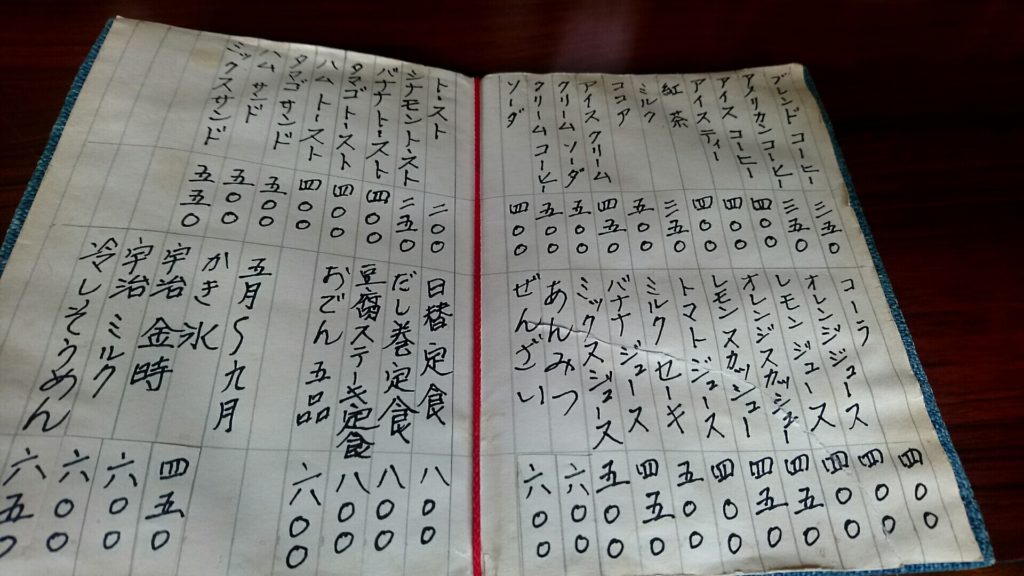 ブレンド コーヒー 三五〇
アメリカンコーヒー 三五〇
アイス コーヒー 四〇〇
アイスティー 四〇〇
紅茶 四〇〇
ミルク 三五〇
ココア 五〇〇
アイスクリーム 四五〇
クリームソーダ 五〇〇
クリームコーヒー 五〇〇
ソーダ 四〇〇
コーラ 四〇〇
オレンジジュース 四〇〇
レモンジュース 四〇〇
オレンジスカッシュ 四五〇
レモンスカッシュ 四五〇
トマトジュース 四〇〇
ミルクセーキ 五〇〇
バナナジュース 四五〇
ミックスジュース 五〇〇
あんみつ 六〇〇
ぜんざい 六〇〇
トースト 二〇〇
シナモントースト 二五〇
バナナトースト 四〇〇
タマゴトースト 四〇〇
ハムトースト 四〇〇
タマゴサンド 五〇〇
ハムサンド 五〇〇
ミックスサンド 五五〇
日替定食 八〇〇
だし巻定食 八〇〇
豆腐ステーキ定食 八〇〇
おでん 五品 六〇〇
五月〜九月
かき氷 四五〇
宇治 金時 六〇〇
宇治 ミルク 六〇〇
冷しそうめん 六五〇